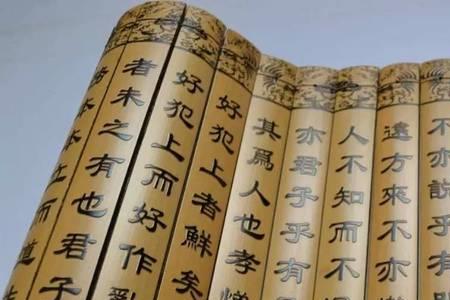 不亦說乎有
遠方來不亦
人不知而不
亦君子乎有
其爲人也孝
好犯上者鮮矣
好犯上而好作亂
者未之有也君子
本本立而道